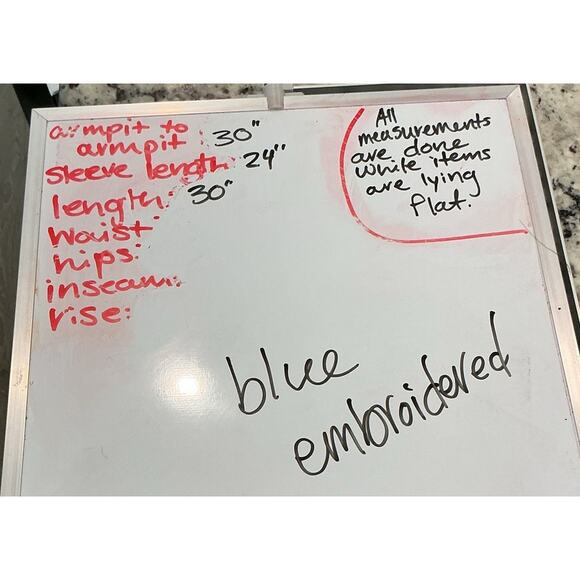 armpit to
armpit: 30"
sleeve length: 24"
length: 30"
waist:
hips:
inseam:
rise:
All
measurements
are done
while items
are lying
flat.
blue
embroidered